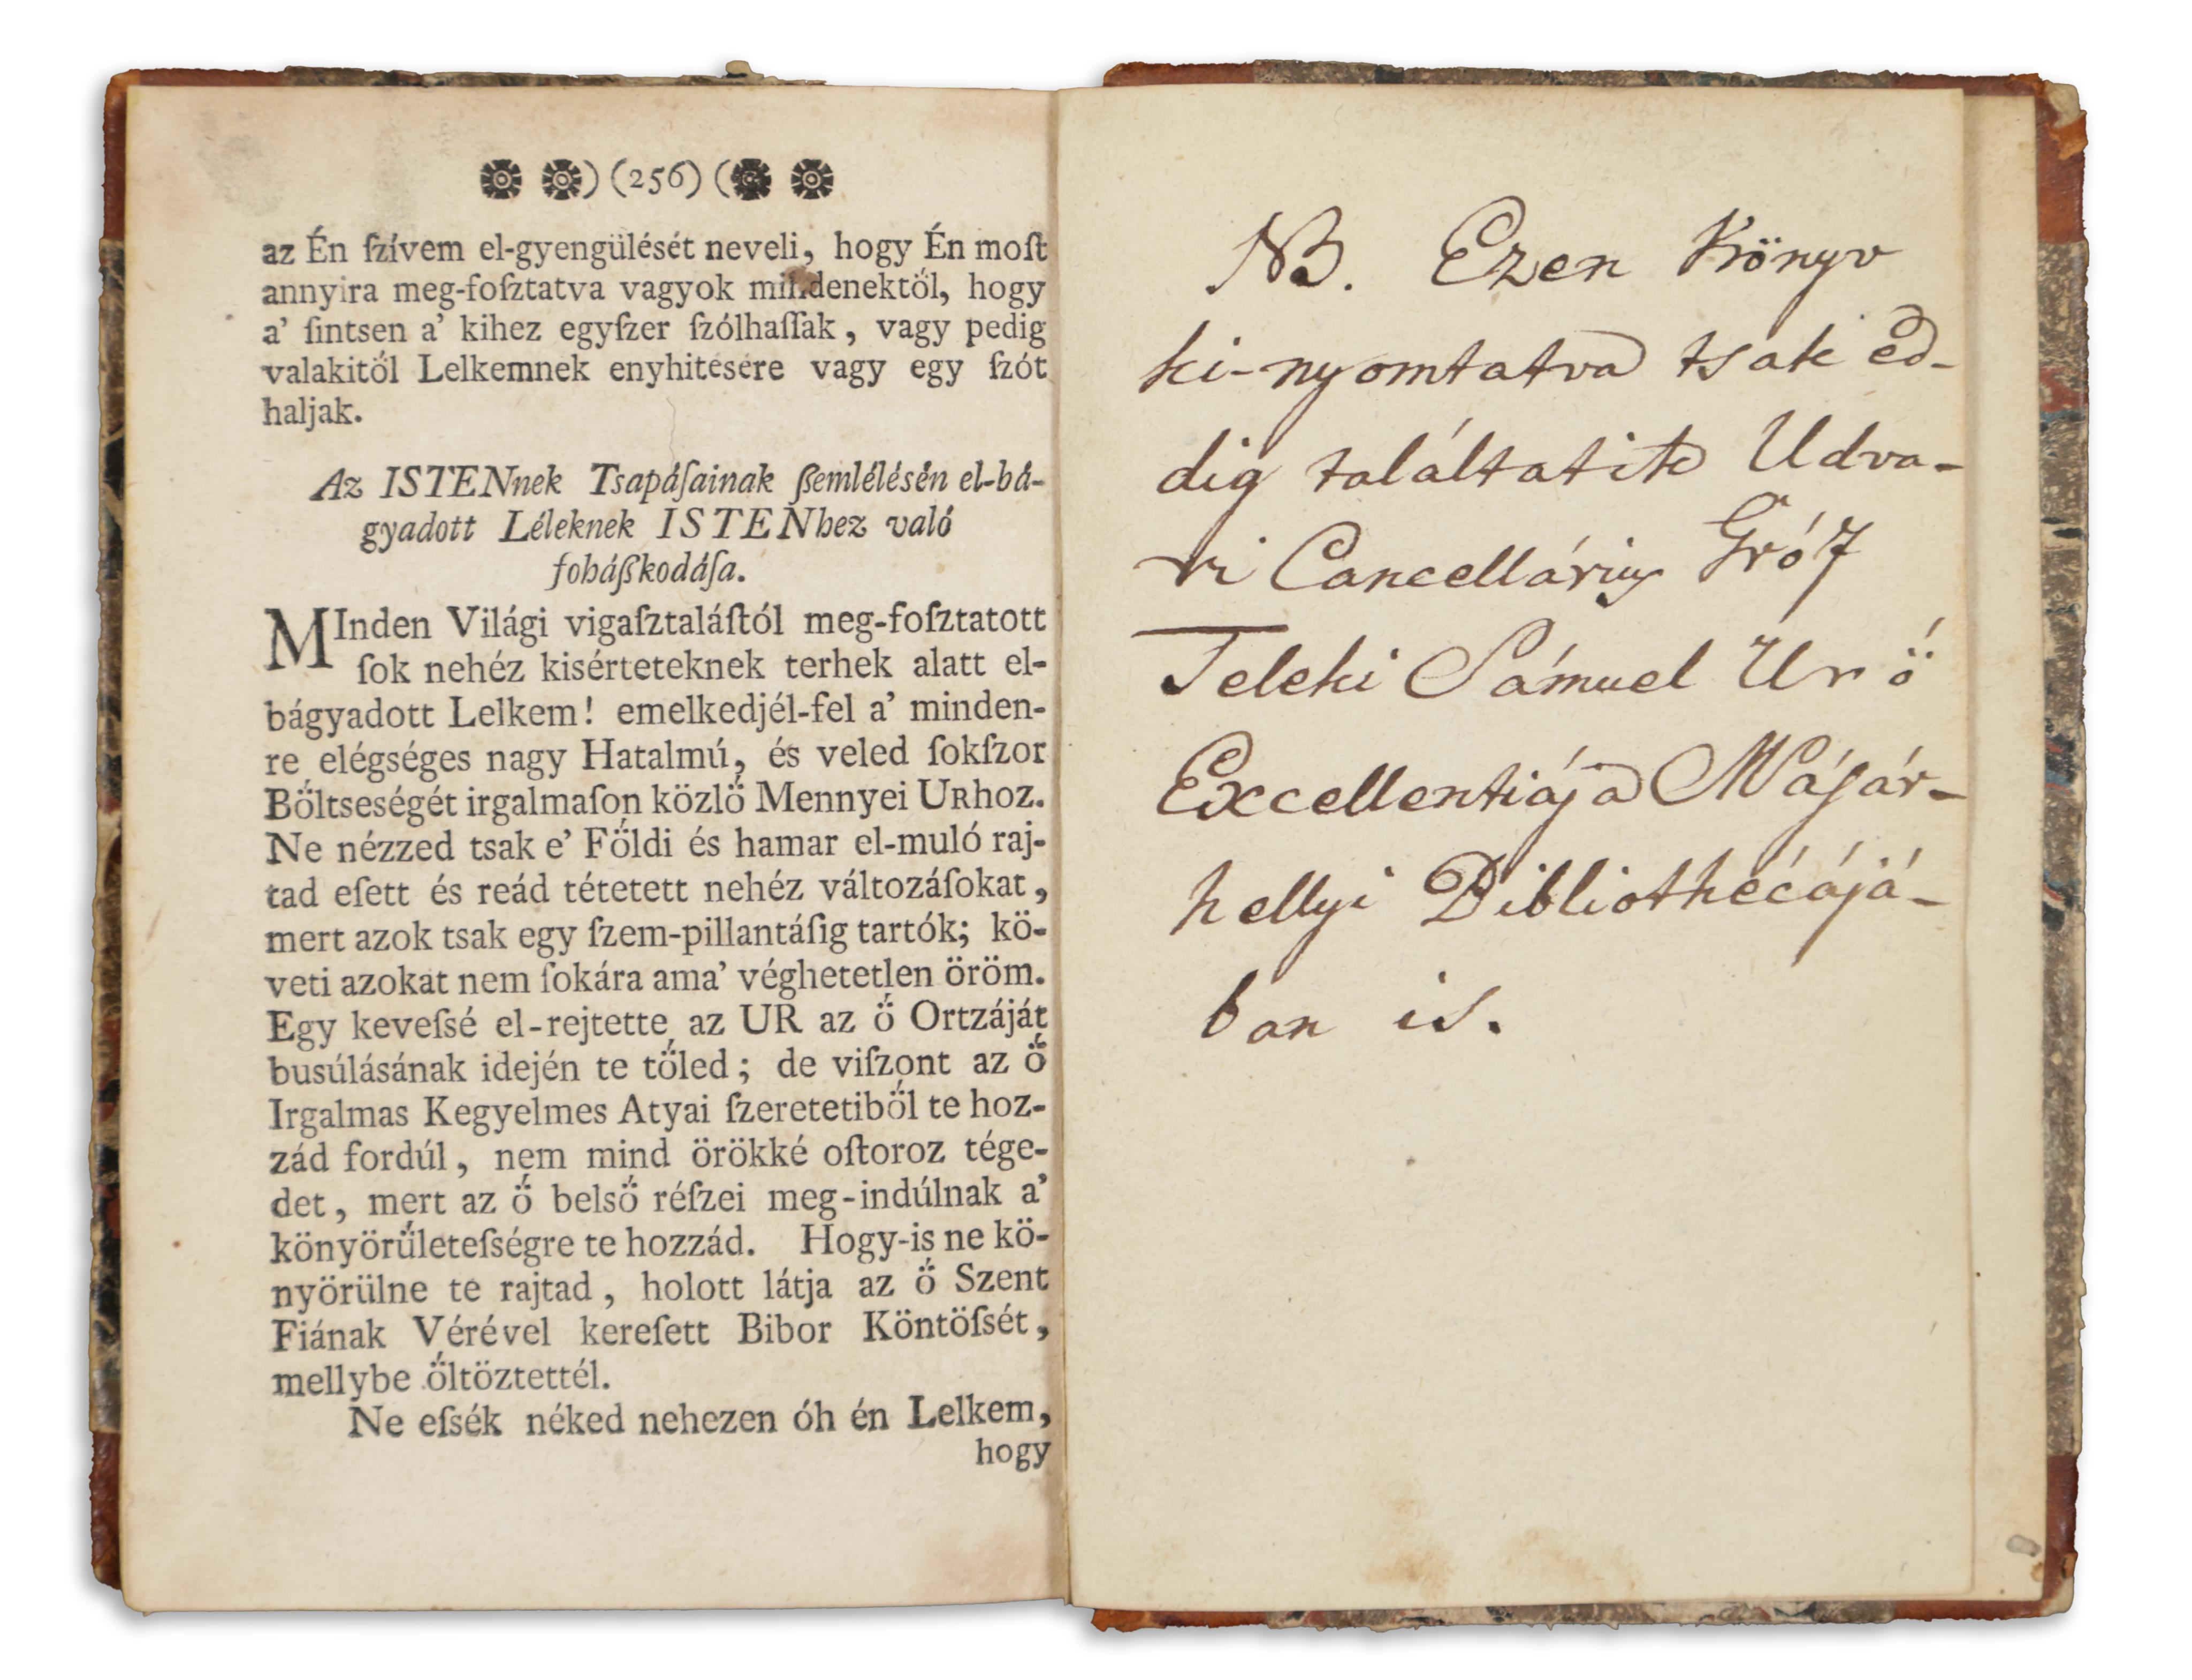 (256)
az Én ſzívem el-gyengülését neveli, hogy Én moſt
annyira meg-foſztatva vagyok mindenektől, hogy
a' ſintsen a' kihez egyſzer ſzólhaſſak, vagy pedig
valakitől Lelkemnek enyhitésére vagy egy ſzót
haljak.
Az ISTENnek Tsapáſainak ßemlélésén el-bá-
gyadott Léleknek ISTENhez való
foháßkodáſa.
MInden Világi vigaſztaláſtól meg-foſztatott
ſok nehéz kisérteteknek terhek alatt el-
bágyadott Lelkem! emelkedjél-fel a' minden-
re elégséges nagy Hatalmú, és veled ſokſzor
Bőltseségét irgalmaſon közlő Mennyei URhoz.
Ne nézzed tsak e' Főldi és hamar el-muló raj-
tad eſett és reád tétetett nehéz változáſokat,
mert azok tsak egy ſzem-pillantáſig tartók; kö-
veti azokat nem ſokára ama' véghetetlen öröm.
Egy keveſsé el-rejtette az UR az ő Ortzáját
busúlásának idején te tőled; de viſzont az ő
Irgalmas Kegyelmes Atyai ſzeretetiből te hoz-
zád fordúl, nem mind örökké oſtoroz tége-
det, mert az ő belső réſzei meg-indúlnak a'
könyörűleteſségre te hozzád. Hogy-is ne kö-
nyörülne te rajtad, holott látja az ő Szent
Fiának Vérével kereſett Bibor Köntöſsét,
mellybe őltöztettél.
Ne eſsék néked nehezen óh én Lelkem,
hogy
NB. Ezen Könyv
ki-nyomtatva tsak ed-
dig találtatik Udva-
ri Cancellárius Gróf
Teleki Sámuel Ur ő
Excellentiája Másár-
hellyi Bibliothécájá-
ban is.